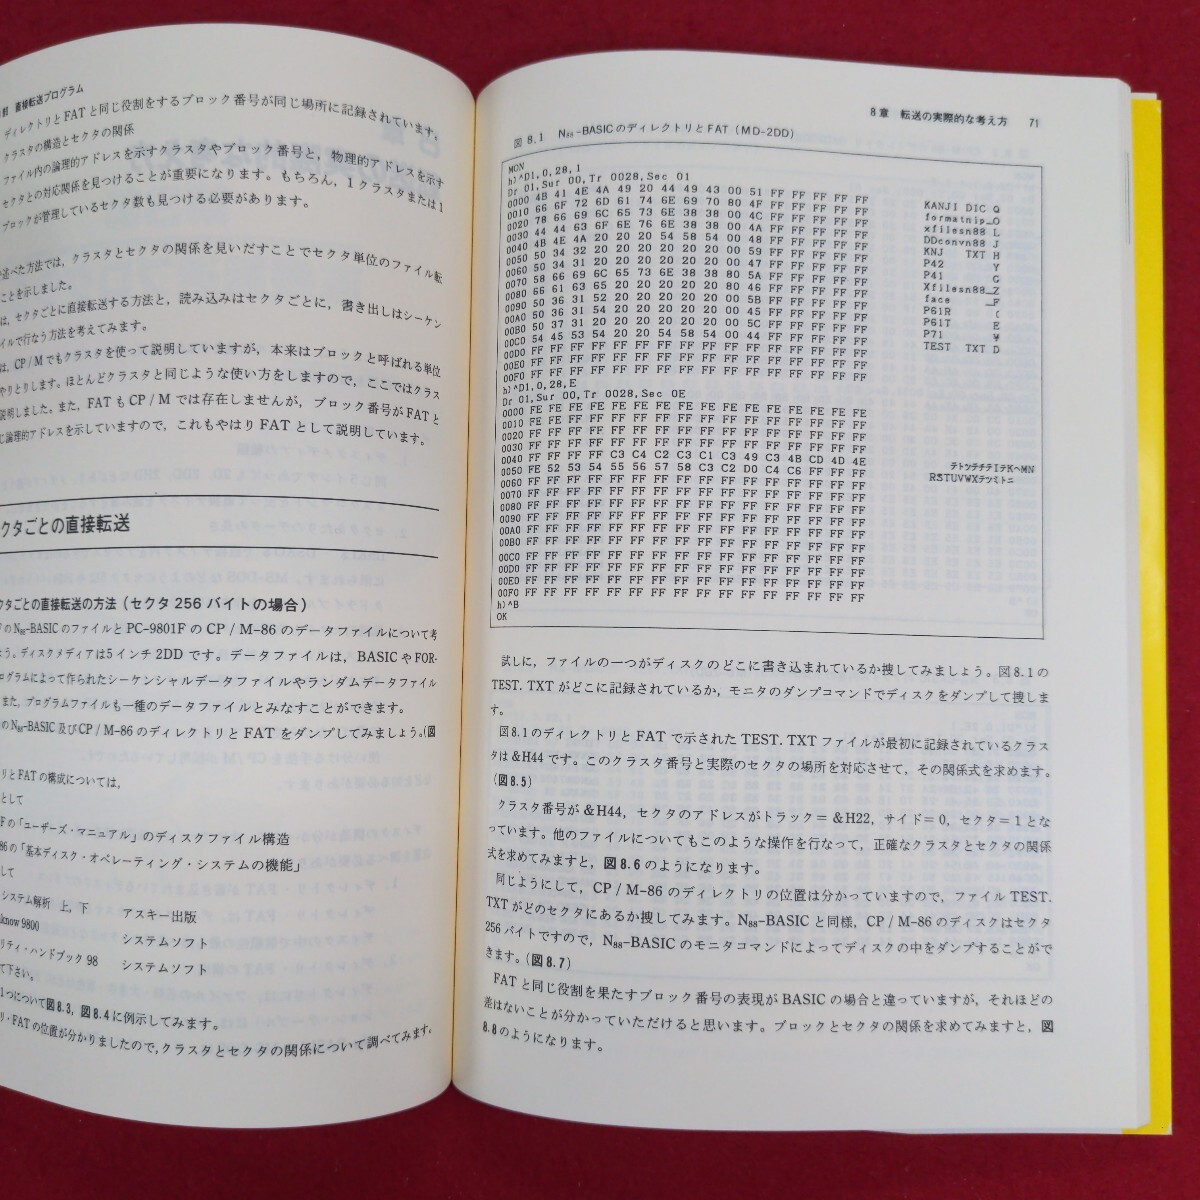 直接転送プログラム
ディレクトリとFATと同じ役割をするブロック番号が同じ場所に記録されています。
クラスタの構造とセクタの関係
ファイル内の論理的アドレスを示すクラスタやブロック番号と，物理的アドレスを示す
セクタとの対応関係を見つけることが重要になります。もちろん，1クラスタまたは1
ブロックが管理しているセクタ数も見つける必要があります。
述べた方法では，クラスタとセクタの関係を見いだすことでセクタ単位のファイル転
ことを示しました。
は，セクタごとに直接転送する方法と，読み込みはセクタごとに，書き出しはシーケン
イルで行なう方法を考えてみます。
は，CP/Mでもクラスタを使って説明していますが，本来はブロックと呼ばれる単位
やりとりします。ほとんどクラスタと同じような使い方をしますので，ここではクラス
説明しました。また，FATもCP/Mでは存在しませんが，ブロック番号がFATと
じ論理的アドレスを示していますので，これもやはりFATとして説明しています。
クタごとの直接転送
クタごとの直接転送の方法（セクタ256バイトの場合）
のN88-BASICのファイルとPC-9801FのCP/M-86のデータファイルについて考
よう。ディスクメディアは5インチ2DDです。データファイルは，BASICやFOR-
ログラムによって作られたシーケンシャルデータファイルやランダムデータファイル
また，プログラムファイルも一種のデータファイルとみなすことができます。
のN88-BASIC及びCP/M-86のディレクトリとFATをダンプしてみましょう。(図
リとFATの構成については，
として
Fの「ユーザーズ・マニュアル」のディスクファイル構造
86の「基本ディスク・オペレーティング・システムの機能」
して
システム解析 上，下　アスキー出版
know 9800　システムソフト
リティ・ハンドブック98　システムソフト
て下さい。
1つについて図8.3，図8.4に例示してみます。
リ・FATの位置が分かりましたので，クラスタとセクタの関係について調べてみます。
8章　転送の実際的な考え方　71
図8.1　N88-BASICのディレクトリとFAT（MD-2DD）
MON
h]^D1,0,28,1
Dr 01,Sur 00,Tr 0028,Sec 01
0000 4B 41 4E 4A 49 20 44 49 43 00 51 FF FF FF FF FF KANJI DIC Q
0010 66 6F 72 6D 61 74 6E 69 70 80 4F FF FF FF FF FF formatnip_O
0020 78 66 69 6C 65 73 6E 38 38 00 4C FF FF FF FF FF xfilesn88 L
0030 44 44 63 6F 6E 76 6E 38 38 00 4A FF FF FF FF FF DDconvn88 J
0040 4B 4E 4A 20 20 20 54 58 54 00 48 FF FF FF FF FF KNJ TXT H
0050 50 34 32 20 20 20 20 20 20 00 59 FF FF FF FF FF P42 Y
0060 50 34 31 20 20 20 20 20 20 00 47 FF FF FF FF FF P41 G
0070 58 66 69 6C 65 73 6E 38 38 80 5A FF FF FF FF FF Xfilesn88_Z
0080 66 61 63 65 20 20 20 20 20 80 46 FF FF FF FF FF face _F
0090 50 36 31 52 20 20 20 20 20 00 5B FF FF FF FF FF P61R [
00A0 50 36 31 54 20 20 20 20 20 00 45 FF FF FF FF FF P61T E
00B0 50 37 31 20 20 20 20 20 20 00 5C FF FF FF FF FF P71 ¥
00C0 54 45 53 54 20 20 54 58 54 00 44 FF FF FF FF FF TEST TXT D
00D0 FF FF FF FF FF FF FF FF FF FF FF FF FF FF FF FF
00E0 FF FF FF FF FF FF FF FF FF FF FF FF FF FF FF FF
00F0 FF FF FF FF FF FF FF FF FF FF FF FF FF FF FF FF
h]^D1,0,28,E
Dr 01,Sur 00,Tr 0028,Sec 0E
0000 FE FE FE FE FE FE FE FE FE FE FE FE FE FE FE FE
0010 FE FF FF FF FF FF FF FF FF FF FF FF FF FF FF FF
0020 FF FF FF FF FF FF FF FF FF FF FF FF FF FF FF FF
0030 FF FF FF FF FF FF FF FF FF FF FF FF FF FF FF FF
0040 FF FF FF FF C3 C4 C2 C3 C1 C3 49 C3 4B CD 4D 4E テトツテチテIテKヘMN
0050 FE 52 53 54 55 56 57 58 C3 C2 D0 C4 C6 FF FF FF RSTUVWXテツミトニ
0060 FF FF FF FF FF FF FF FF FF FF FF FF FF FF FF FF
0070 FF FF FF FF FF FF FF FF FF FF FF FF FF FF FF FF
0080 FF FF FF FF FF FF FF FF FF FF FF FF FF FF FF FF
0090 FF FF FF FF FF FF FF FF FF FF FF FF FF FF FF FF
00A0 FF FF FF FF FF FF FF FF FF FF FF FF FF FF FF FF
00B0 FF FF FF FF FF FF FF FF FF FF FF FF FF FF FF FF
00C0 FF FF FF FF FF FF FF FF FF FF FF FF FF FF FF FF
00D0 FF FF FF FF FF FF FF FF FF FF FF FF FF FF FF FF
00E0 FF FF FF FF FF FF FF FF FF FF FF FF FF FF FF FF
00F0 FF FF FF FF FF FF FF FF FF FF FF FF FF FF FF FF
h]^B
OK
試しに，ファイルの一つがディスクのどこに書き込まれているか捜してみましょう。図8.1の
TEST. TXTがどこに記録されているか，モニタのダンプコマンドでディスクをダンプして捜しま
す。
図8.1のディレクトリとFATで示されたTEST. TXTファイルが最初に記録されているクラス
タは&H44です。このクラスタ番号と実際のセクタの場所を対応させて，その関係式を求めます。
(図8.5)
クラスタ番号が&H44，セクタのアドレスがトラック＝&H22，サイド＝0，セクタ＝1とな
っています。他のファイルについてもこのような操作を行なって，正確なクラスタとセクタの関係
式を求めてみますと，図8.6のようになります。
同じようにして，CP/M-86のディレクトリの位置は分かっていますので，ファイルTEST.
TXTがどのセクタにあるか捜してみます。N88-BASICと同様，CP/M-86のディスクはセクタ
256バイトですので，N88-BASICのモニタコマンドによってディスクの中をダンプすることがで
きます。(図8.7)
FATと同じ役割を果たすブロック番号の表現がBASICの場合と違っていますが，それほどの
差はないことが分かっていただけると思います。ブロックとセクタの関係を求めてみますと，図
8.8のようになります。